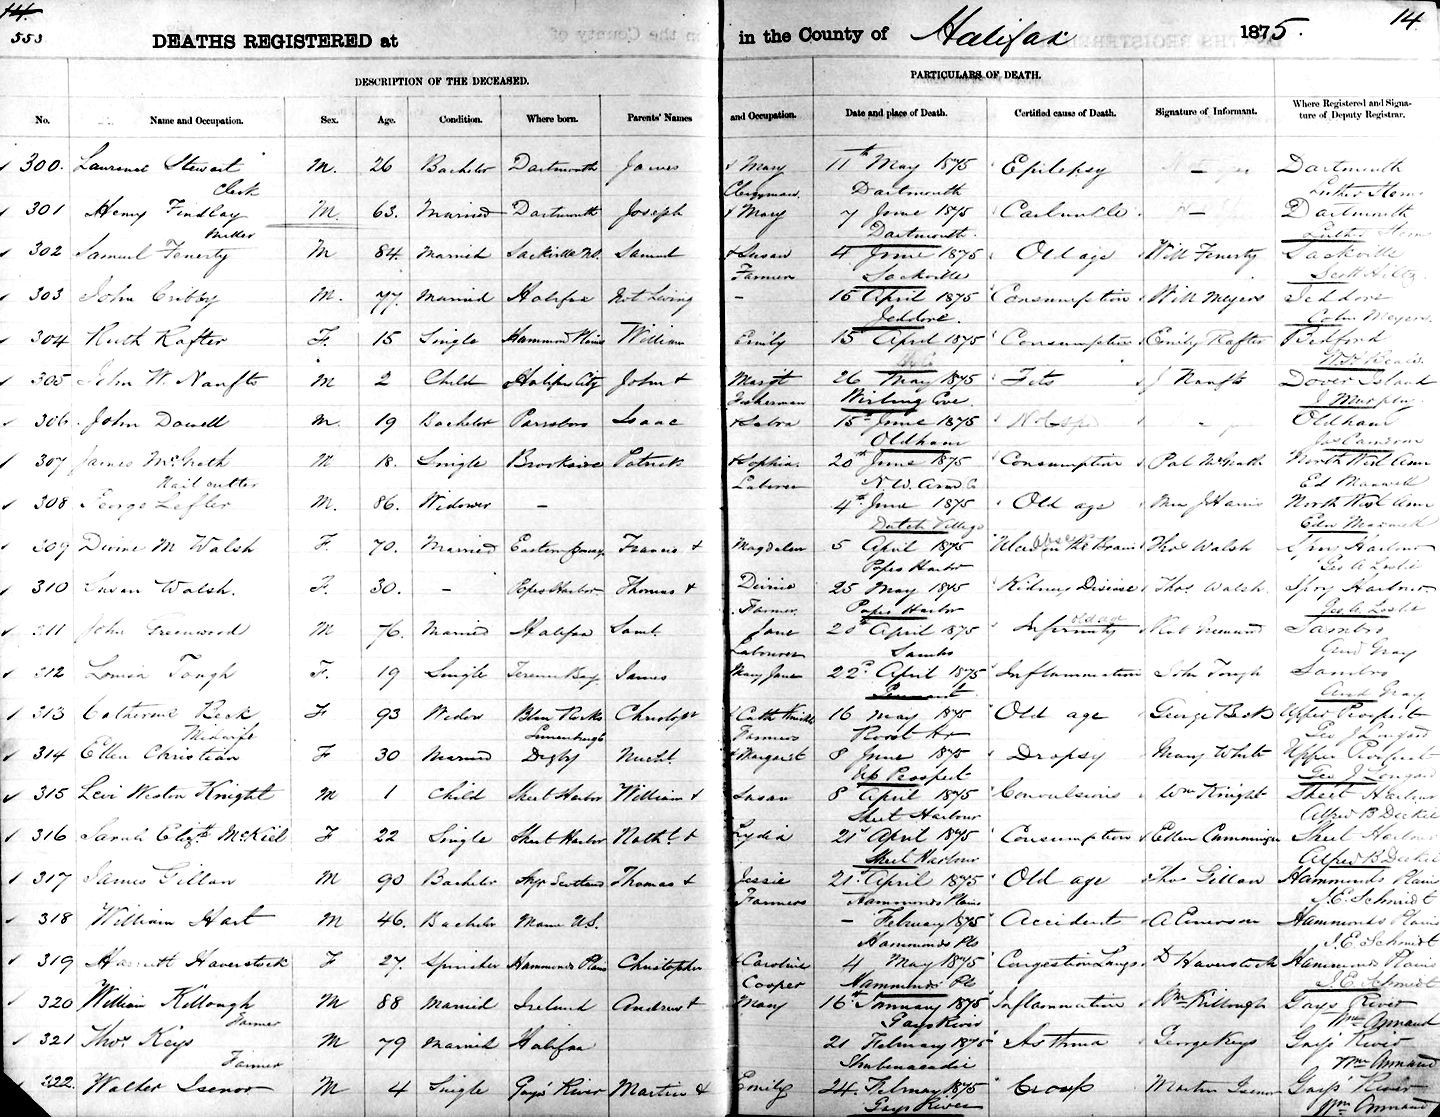 14.
553
DEATHS REGISTERED at in the County of Halifax 1875. 14
DESCRIPTION OF THE DECEASED. PARTICULARS OF DEATH.
No. Name and Occupation. Sex. Age. Condition. Where born. Parents' Names and Occupation. Date and place of Death. Certified cause of Death. Signature of Informant. Where Registered and Signature of Deputy Registrar.
300. Lawrence Stewart M. 26 Bachelor Dartmouth James & Mary 11th May 1875 Epilepsy — Dartmouth
Clerk Clergyman Dartmouth
301 Henry Findlay M. 63. Married Dartmouth Joseph & Mary 7 June 1875 Carbuncle — Dartmouth
Dartmouth.
302 Samuel Fenerty M 84 Married Sackville Samuel & Susan 4 June 1875 Old age Will Fenerty Sackville
Farmer Sackville
303 John Cribby M. 77. Married Halifax Not Living — 15 April 1875 Consumption Will Meyers Jeddore
Jeddore.
304 Ruth Rafter F. 15 Single Hammond Plains William Emily 15 April 1875 Consumption Emily Rafter Bedford
305 John W. Naufts M 2 Child Halifax City John & Margt 26 May 1875 Fits J Naufts Dover Island
Fisherman Cove J Murphy
306. John Dowell M. 19 Bachelor Parrsboro Isaac 15th June 1875 Oldham
Oldham Jas Cameron
307 James McGrath M 18. Single Brookside Patrick & Sophia 20th June 1875 Consumption Pat McGrath North West Arm
Nail cutter Laborer N.W. Arm Ed Maxwell
308 George Lefler M. 86. Widower — 4th June 1875 Old age Mrs J Harris North West Arm
Dutch Village Edw Maxwell
309 M Walsh F 70. Married Francis & Magdalen 5 April 1875 Abscess in the Brain Thos Walsh Spry Harbour
Popes Harbor Geo A Leslie
310 Susan Walsh. F. 30. — Popes Harbor Thomas & 25 May 1875 Kidney Disease Thos Walsh Spry Harbour
Farmer. Popes Harbor Geo. A. Leslie
311 John Greenwood M 76. Married Halifax Saml. Jane 20th April 1875 Infirmity old age Rob Greenwood Sambro
Labourer Sambro And Gray
312 Louisa Tough F. 19 Single Terence Bay James Mary Jane 22d April 1875 Inflammation John Tough Sambro
And Gray
313 Catherine Beck F 93 Widow Blue Rocks Christopr & Cath 16 May 1875 Old age George Beck Upper Prospect
Midwife Lunenburg Co Farmers
314 Ellen Christian F 30 Married Digby & Margaret 8 June 1875 Dropsy Mary White Upper Prospect
Up Prospect Geo J Longard
315 Levi Weston Knight M 1 Child Sheet Harbor William & Susan 8 April 1875 Convulsions Wm Knight Sheet Harbour
Sheet Harbour Alfred B Dickie
316 Sarah Elizth McKiel F 22 Single Sheet Harbor Nathl. & Lydia 21st April 1875 Consumption Ellen Cumminger Sheet Harbour
Sheet Harbour Alfred B Dickie
317 James Gillan M 90 Bachelor Scotland Thomas & Jessie 21st April 1875 Old age Thos Gillan Hammonds Plain
Farmers Hammonds Plains J. E. Schmidt
318 William Hart M 46. Bachelor Maine U.S. — February 1875 Accident A Emerson Hammonds Plains
Hammonds Pls J. E. Schmidt
319 Harriett Haverstock F 27. Spinster Hammonds Plains Christopher & Caroline 4 May 1875 Congestion Lungs D Haverstock Hammonds Plains
Cooper Hammonds Pls J. E. Schmidt
320 William Killough M 88 Married Ireland Andrew & Mary 16th January 1875 Inflammation Wm Killough Gays River
Farmer Gays River Wm Annand
321 Thos Keys M 79 Married Halifax 21 February 1875 Asthma George Keys Gays River
Farmer Shubenacadie Wm Annand
322. Walter Isenor M 4 Single Gays River Martin & Emily 24. February 1875 Croup Martin Isenor Gays River
Gays River Wm Annand